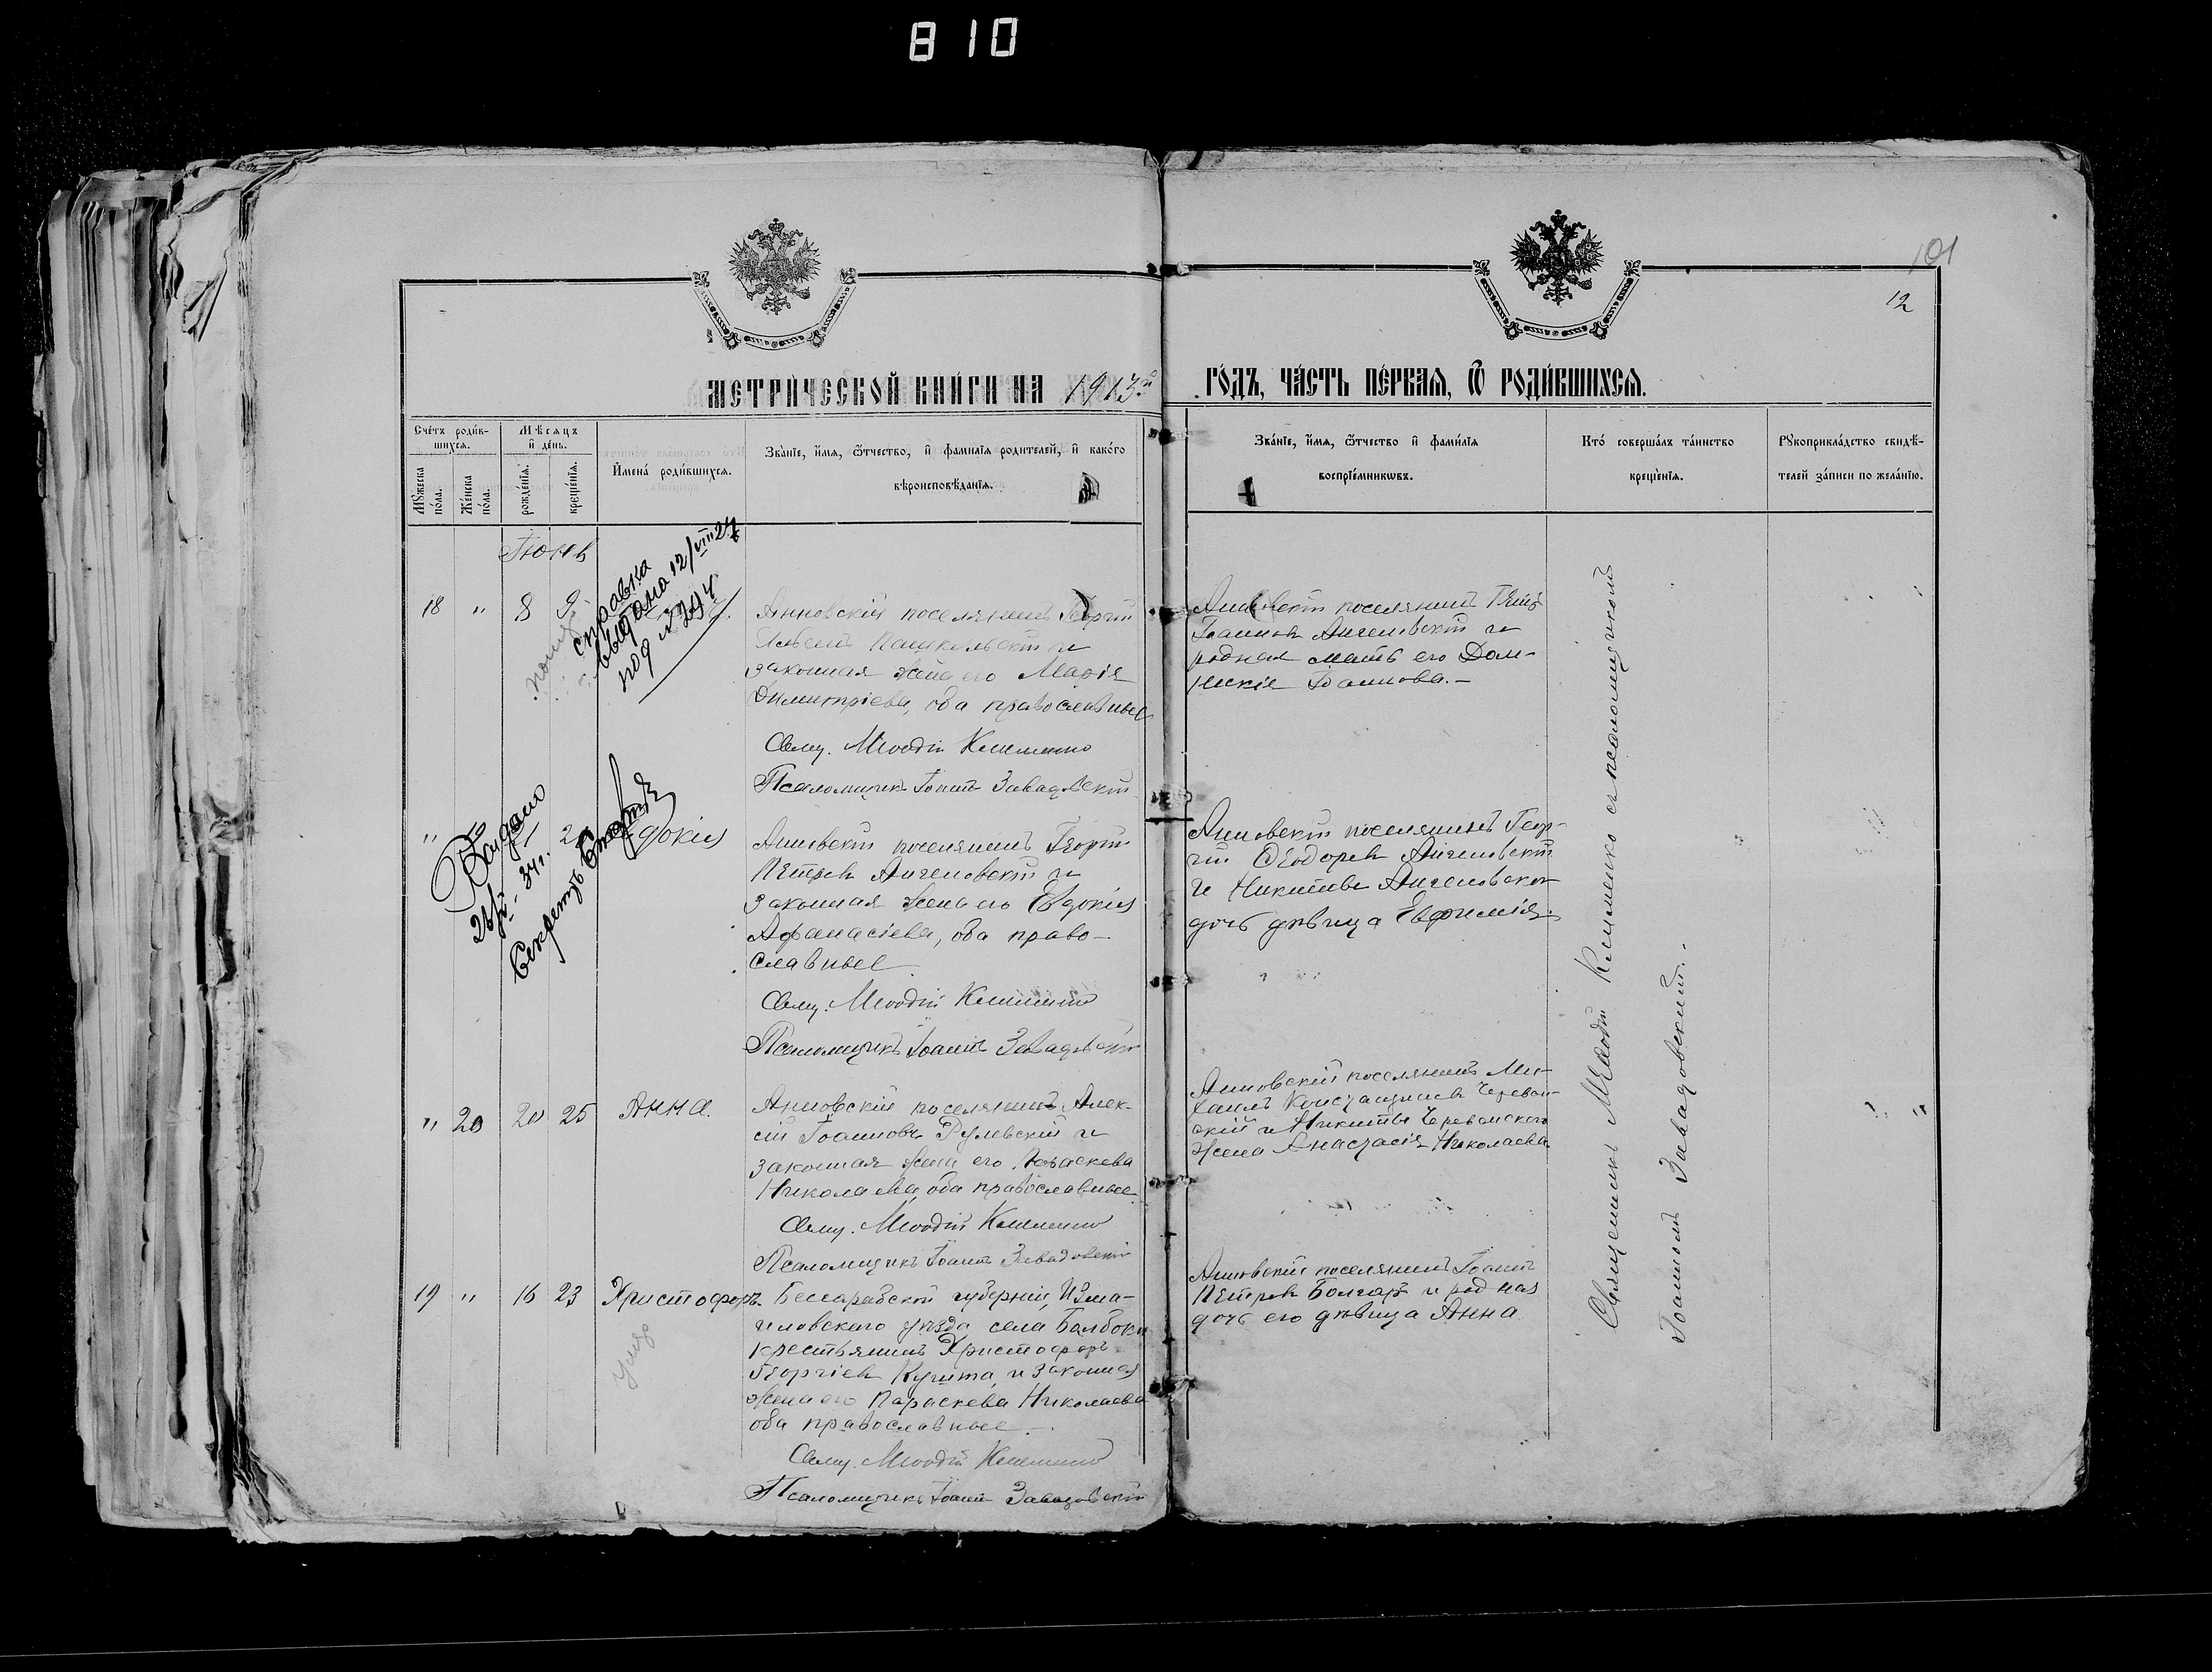 810
101
12
МЕТРИЧЕСКОЙ КНИГИ НА 1913й ГОДЪ, ЧАСТЬ ПЕРВАЯ, Ѿ РОДИВШИХСЯ.
Счетъ родив-
шихся.
Мужеска
пола.
Женска
пола.
Мѣсяцъ
и день.
рожденія.
крещенія.
Имена родившихся.
Званіе, имя, ѿтчество, и фамилія родителей, и какого
вѣроисповѣданія.
Званіе, имя, ѿтчество и фамилія
воспріемниковъ.
Кто совершалъ таинство
крещенія.
Рукоприкладство свидѣ-
телей записи по желанію.
18 " 8 9
справка
выдана 12/VIII 27
под № 294
Анновскій поселянинъ Георгій
и
законная жена его Марія
Димитріева, оба православные
Свящ. Меѳодій Клименко
Псаломщикъ Іоаннъ Завадовскій
поселянинъ
Іоанновъ Ангеловскій и
родная мать его Дом-
Іоаннова.-
"
Выдано
34г.
Секретарь
Евдокія
Анновскій поселянинъ Георгій
Петровъ Ангеловскій и
законная жена его Евдокія
Афанасіева, оба право-
славные
Свящ. Меѳодій Клименко
Псаломщикъ Іоаннъ Завадовскій
Анновскій поселянинъ Геор-
гій Ѳеодоровъ Ангеловскій
и Никиты Ангеловскаго
дочь дѣвица Евфимія.
" 20 20 25 Анна.
Анновскій поселянинъ Алек-
сій Іоанновъ Рулевскій и
законная жена его Параскева
Николаева, оба православные
Свящ. Меѳодій Клименко
Псаломщикъ Іоаннъ Завадовскій
Анновскій поселянинъ Ми-
хаилъ Константиновъ Череван-
скій и Никиты Череванскаго
жена Анастасія Николаева
19 " 16 23 Христофоръ.
Бессарабской губерніи, Изма-
иловскаго уѣзда села Балбоки
крестьянинъ Христофоръ
Георгіевъ Кушта, и законная
жена его Параскева Николаева
оба православные.
Свящ. Меѳодій Клименко
Псаломщикъ Іоаннъ Завадовскій
Анновскій поселянинъ Іоаннъ
Петровъ Болгаръ и родная
дочь его дѣвица Анна
Священникъ Меѳодій Клименко съ псаломщикомъ
Іоанномъ Завадовскимъ.